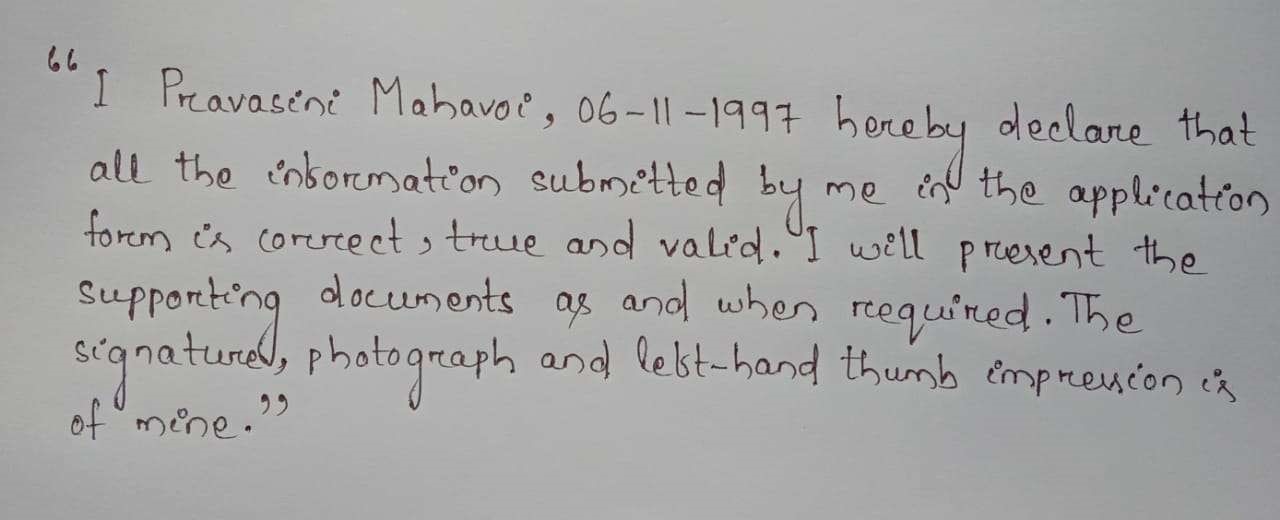 “I Pravasini Mahavoi, 06-11-1997 hereby declare that
all the information submitted by me in the application
form is correct, true and valid. I will present the
supporting documents as and when required. The
signature, photograph and left-hand thumb impression is
of mine.”